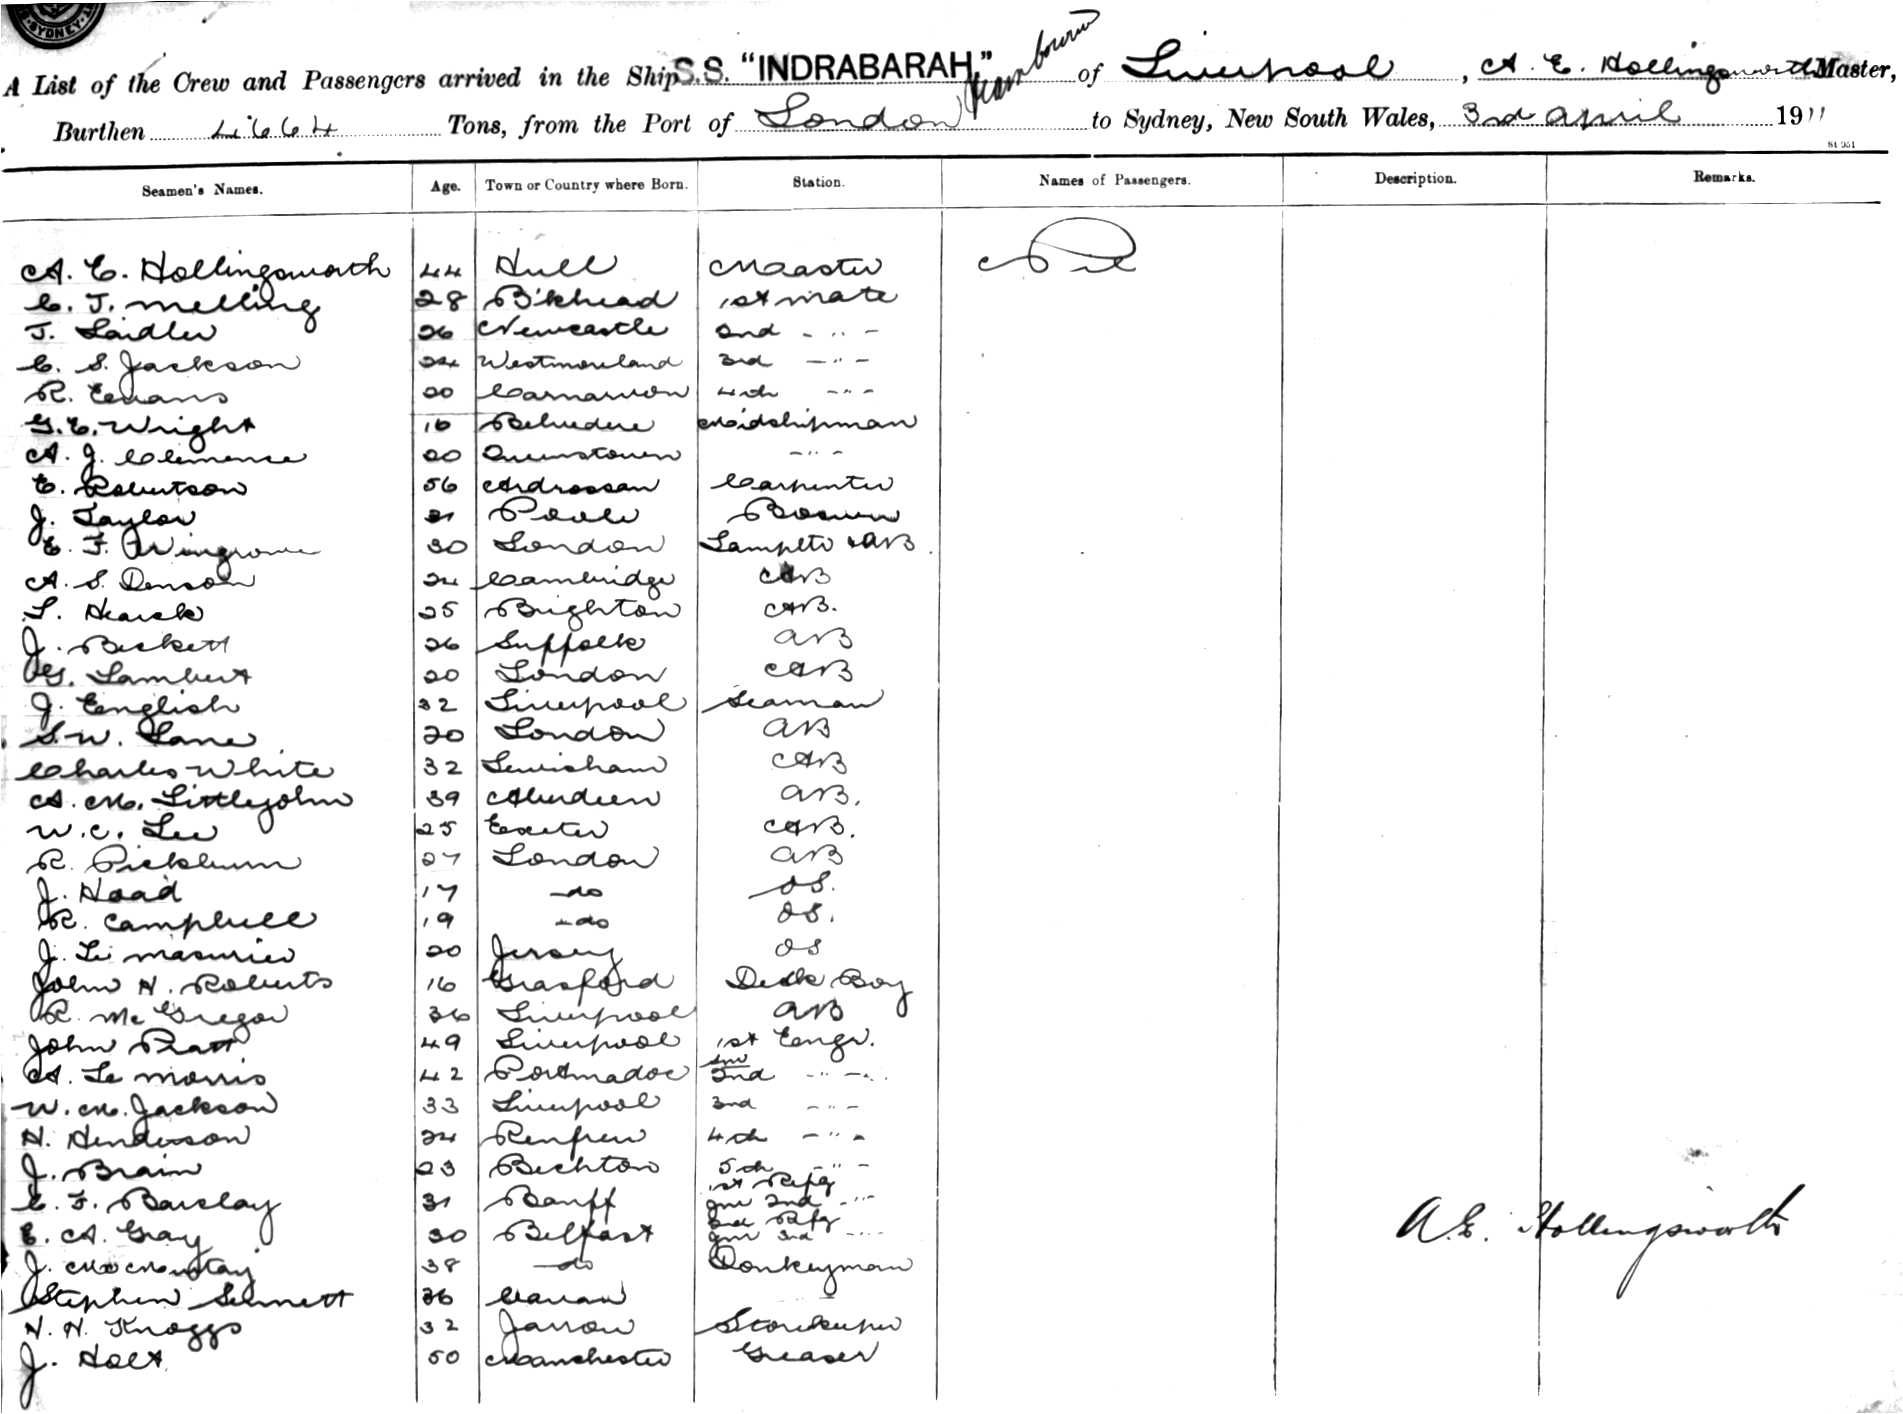 SYDNEY
A List of the Crew and Passengers arrived in the Ship S.S. "INDRABARAH" of Liverpool, A. E. Hollingsworth Master,
Burthen 4664 Tons, from the Port of London to Sydney, New South Wales, 3rd April 1911
Seamen's Names. Age. Town or Country where Born. Station. Names of Passengers. Description. Remarks.
A. E. Hollingsworth 44 Hull Master Nil
C. J. Melling 28 B'khead 1st Mate
J. Laidler 26 Newcastle 2nd - " -
C. S. Jackson 24 Westmoreland 3rd - " -
R. Evans 20 Carnarvon 4th - " -
G. E. Wright 16 Belvedere Midshipman
A. J. Clemence 20 Queenstown - " -
E. Robertson 56 Ardrossan Carpenter
J. Taylor 31 Poole Bosun
E. F. Wingrove 30 London Lamptr & AB.
A. S. Denson 24 Cambridge AB
L. Hearck 25 Brighton AB.
J. Beckett 26 Suffolk AB
G. Lambert 20 London AB
J. English 32 Liverpool Seaman
S. W. Lane 20 London AB
Charles White 32 Lewisham AB
A. M. Littlejohn 39 Aberdeen AB.
W. C. Lee 25 Exeter AB.
R. Pickburn 27 London AB
J. Hoad 17 - do OS.
R. Campbell 19 - do OS.
J. Le Masurier 20 Jersey OS
John H. Roberts 16 Grasford Deck Boy
R. McGregor 36 Liverpool AB
John Pratt 49 Liverpool 1st Engr.
A. Le Morris 42 Portmadoc 2nd - " -
W. M. Jackson 33 Liverpool 3rd - " -
H. Henderson 24 Renfrew 4th - " -
J. Brain 23 Beckton 5th - " -
C. F. Barclay 31 Banff 1st Refg Jnr 2nd - " -
E. A. Gray 30 Belfast 2nd Refg Jnr 3rd - " -
A. E. Hollingsworth
J. 38 - do Donkeyman
Stephen Sennett 36 - " -
H. H. Knaggs 32 Jarrow Storekeeper
J. Holt 50 Manchester Greaser